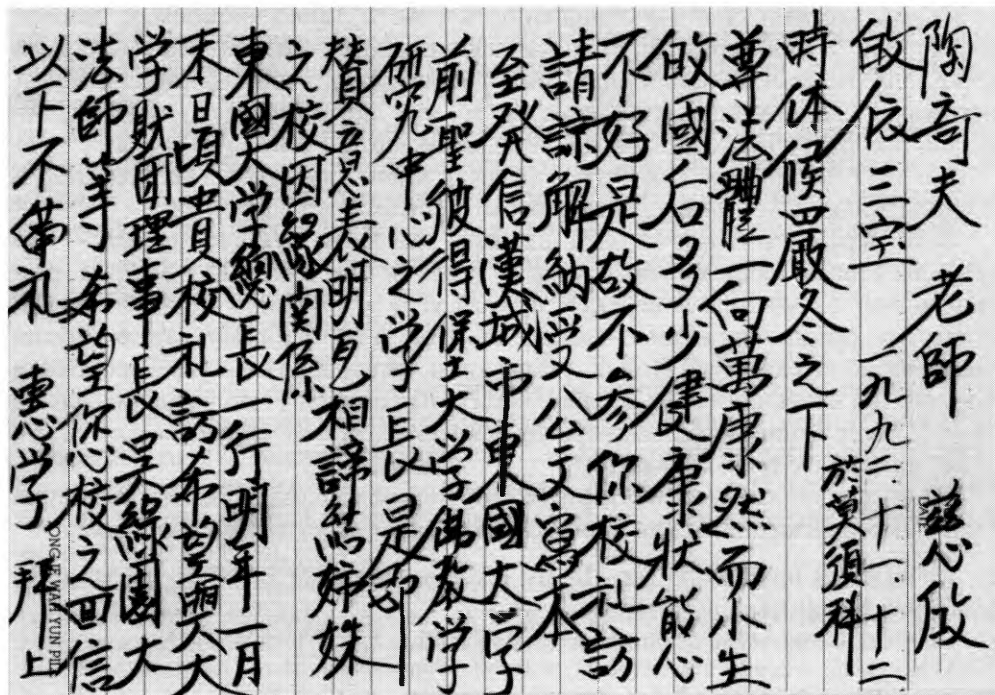 陶奇夫 老師 慈心啟
皈依三宝 一九九二.十一.十二
時体候四嚴冬之下 於莫須科
尊法體一向萬康然而小生
皈國后多少健康狀能心
不好是故不参你校礼訪
請諒解納受公文寫本
至 信漢城市東國大学
前聖彼得保士大学佛教学
研究中心之学長是
賛意表明互相諦結姉妹
之校因緣関係
東國大学總長一行明年一月
末日頃貴校礼訪希望 大大
学財团理事長吴綠園大
法師等 希望你心校之回信
以下不備礼 惠学 拜上